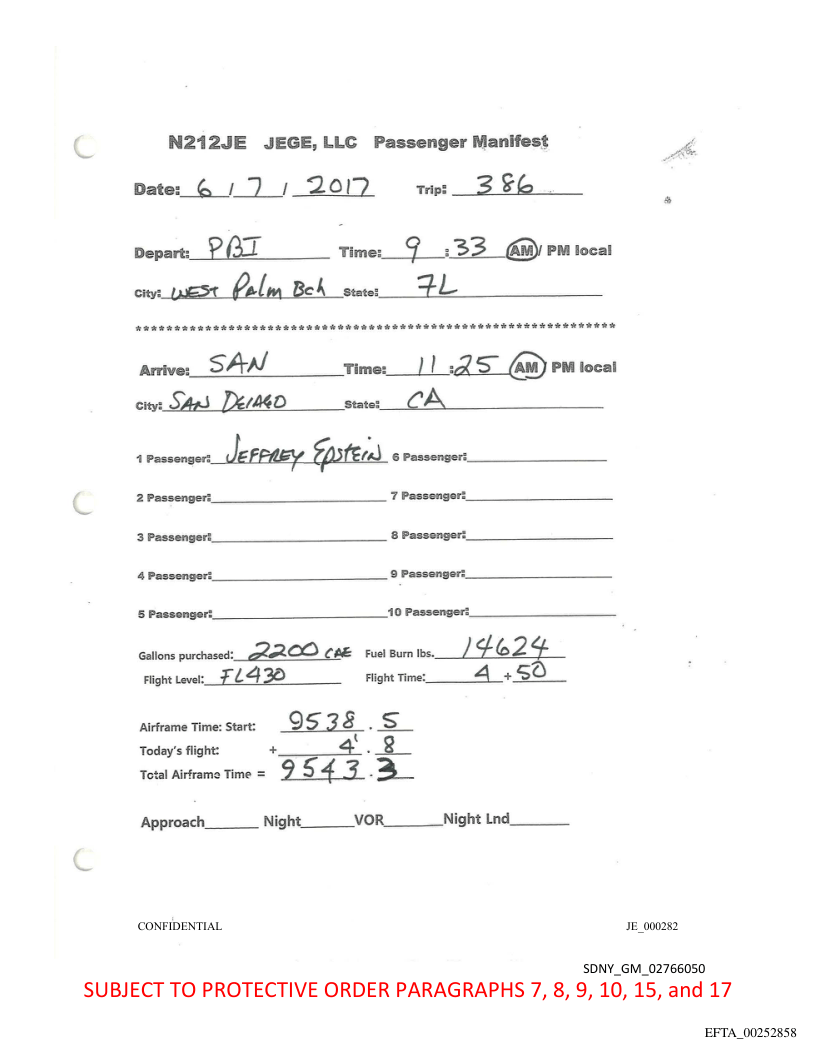 N212JE JEGE, LLC Passenger Manifest
Date: 6 / 7 / 2017 Trip: 386
Depart: PBI Time: 9 :33 AM/ PM local
City: WEST Palm Bch State: FL
************************************************************
Arrive: SAN Time: 11 :25 AM/ PM local
City: SAN DEIAGO State: CA
1 Passenger: JEFFREY EPSTEIN 6 Passenger:
2 Passenger: 7 Passenger:
3 Passenger: 8 Passenger:
4 Passenger: 9 Passenger:
5 Passenger: 10 Passenger:
Gallons purchased: 2200 CAE Fuel Burn lbs. 14624
Flight Level: FL430 Flight Time: 4 + 50
Airframe Time: Start: 9538 . 5
Today's flight: + 4 . 8
Total Airframe Time = 9543 . 3
Approach Night VOR Night Lnd
CONFIDENTIAL JE_000282
SDNY_GM_02766050
SUBJECT TO PROTECTIVE ORDER PARAGRAPHS 7, 8, 9, 10, 15, and 17
EFTA_00252858